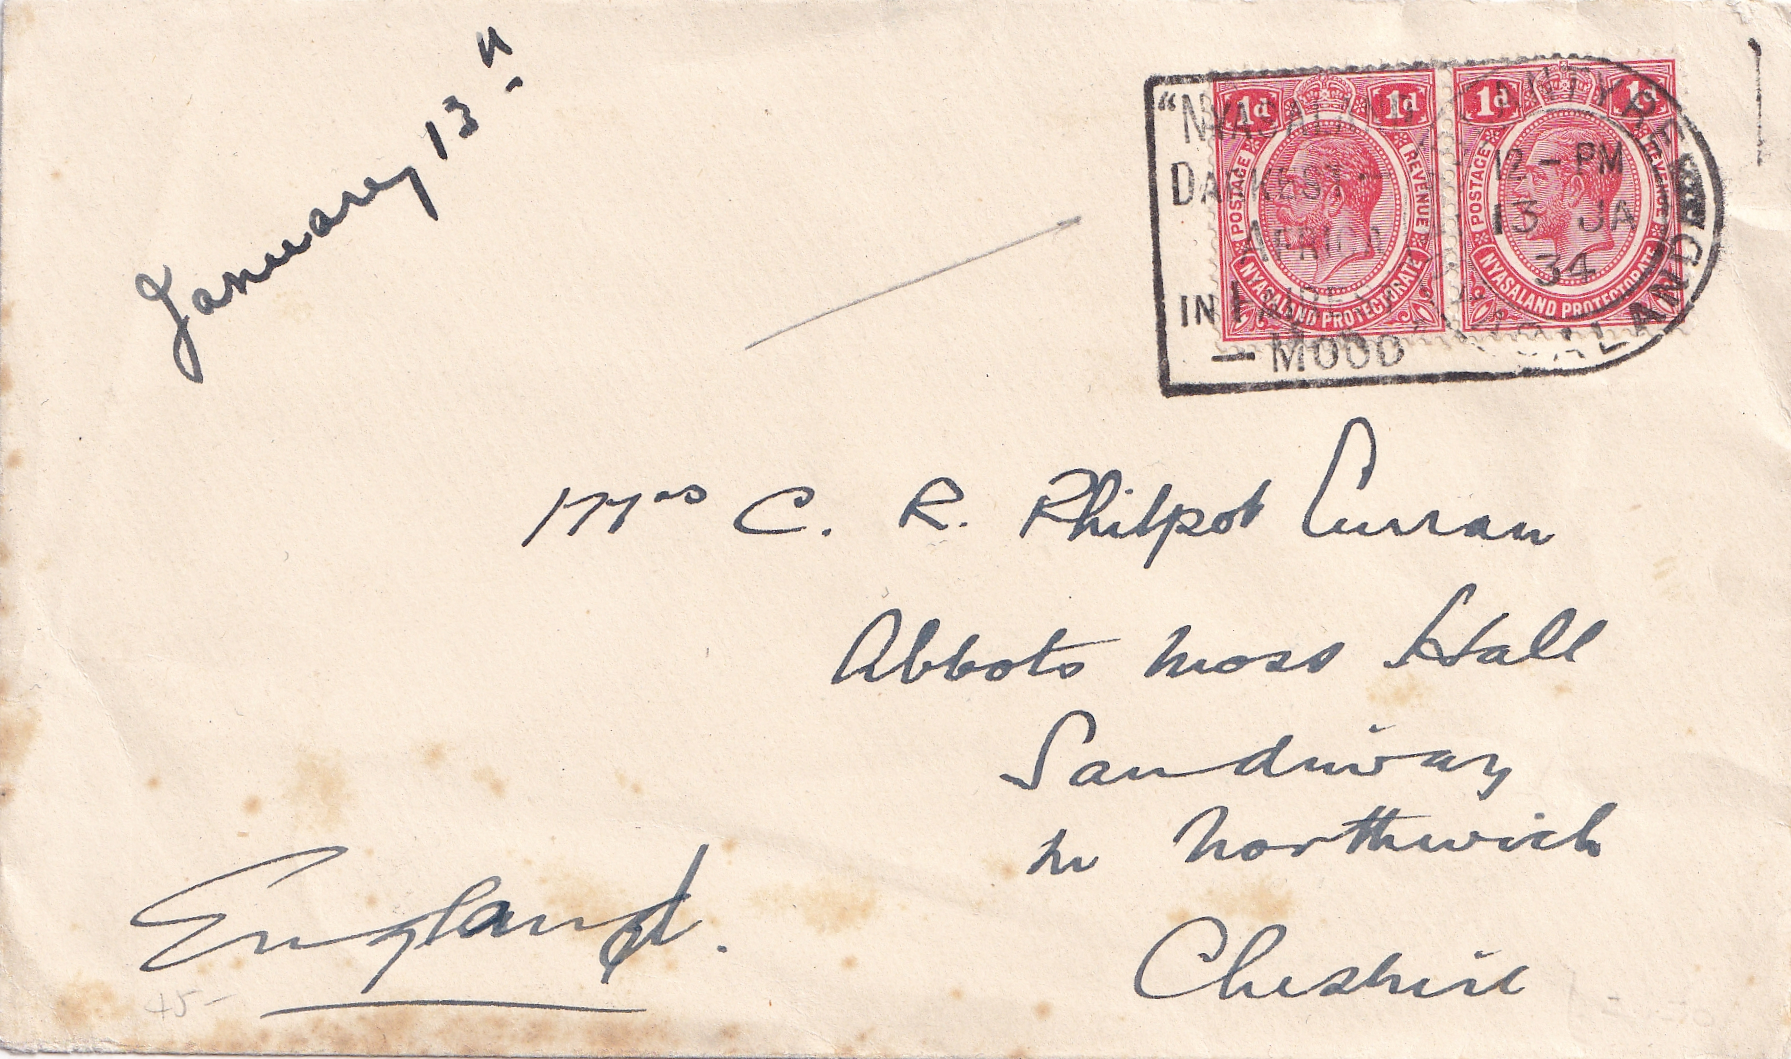 January 13th
"NYASALAND
DARKEST
AFRICA
IN FAIREST
— MOOD
BLANTYRE
12 - PM
13 JA
34
NYASALAND
1d 1d
POSTAGE REVENUE
NYASALAND PROTECTORATE
1d 1d
POSTAGE & REVENUE
NYASALAND PROTECTORATE
Mrs C. R. Philpot Curran
Abbots Moss Hall
Sandiway
Nr Northwich
Cheshire
England.
45-